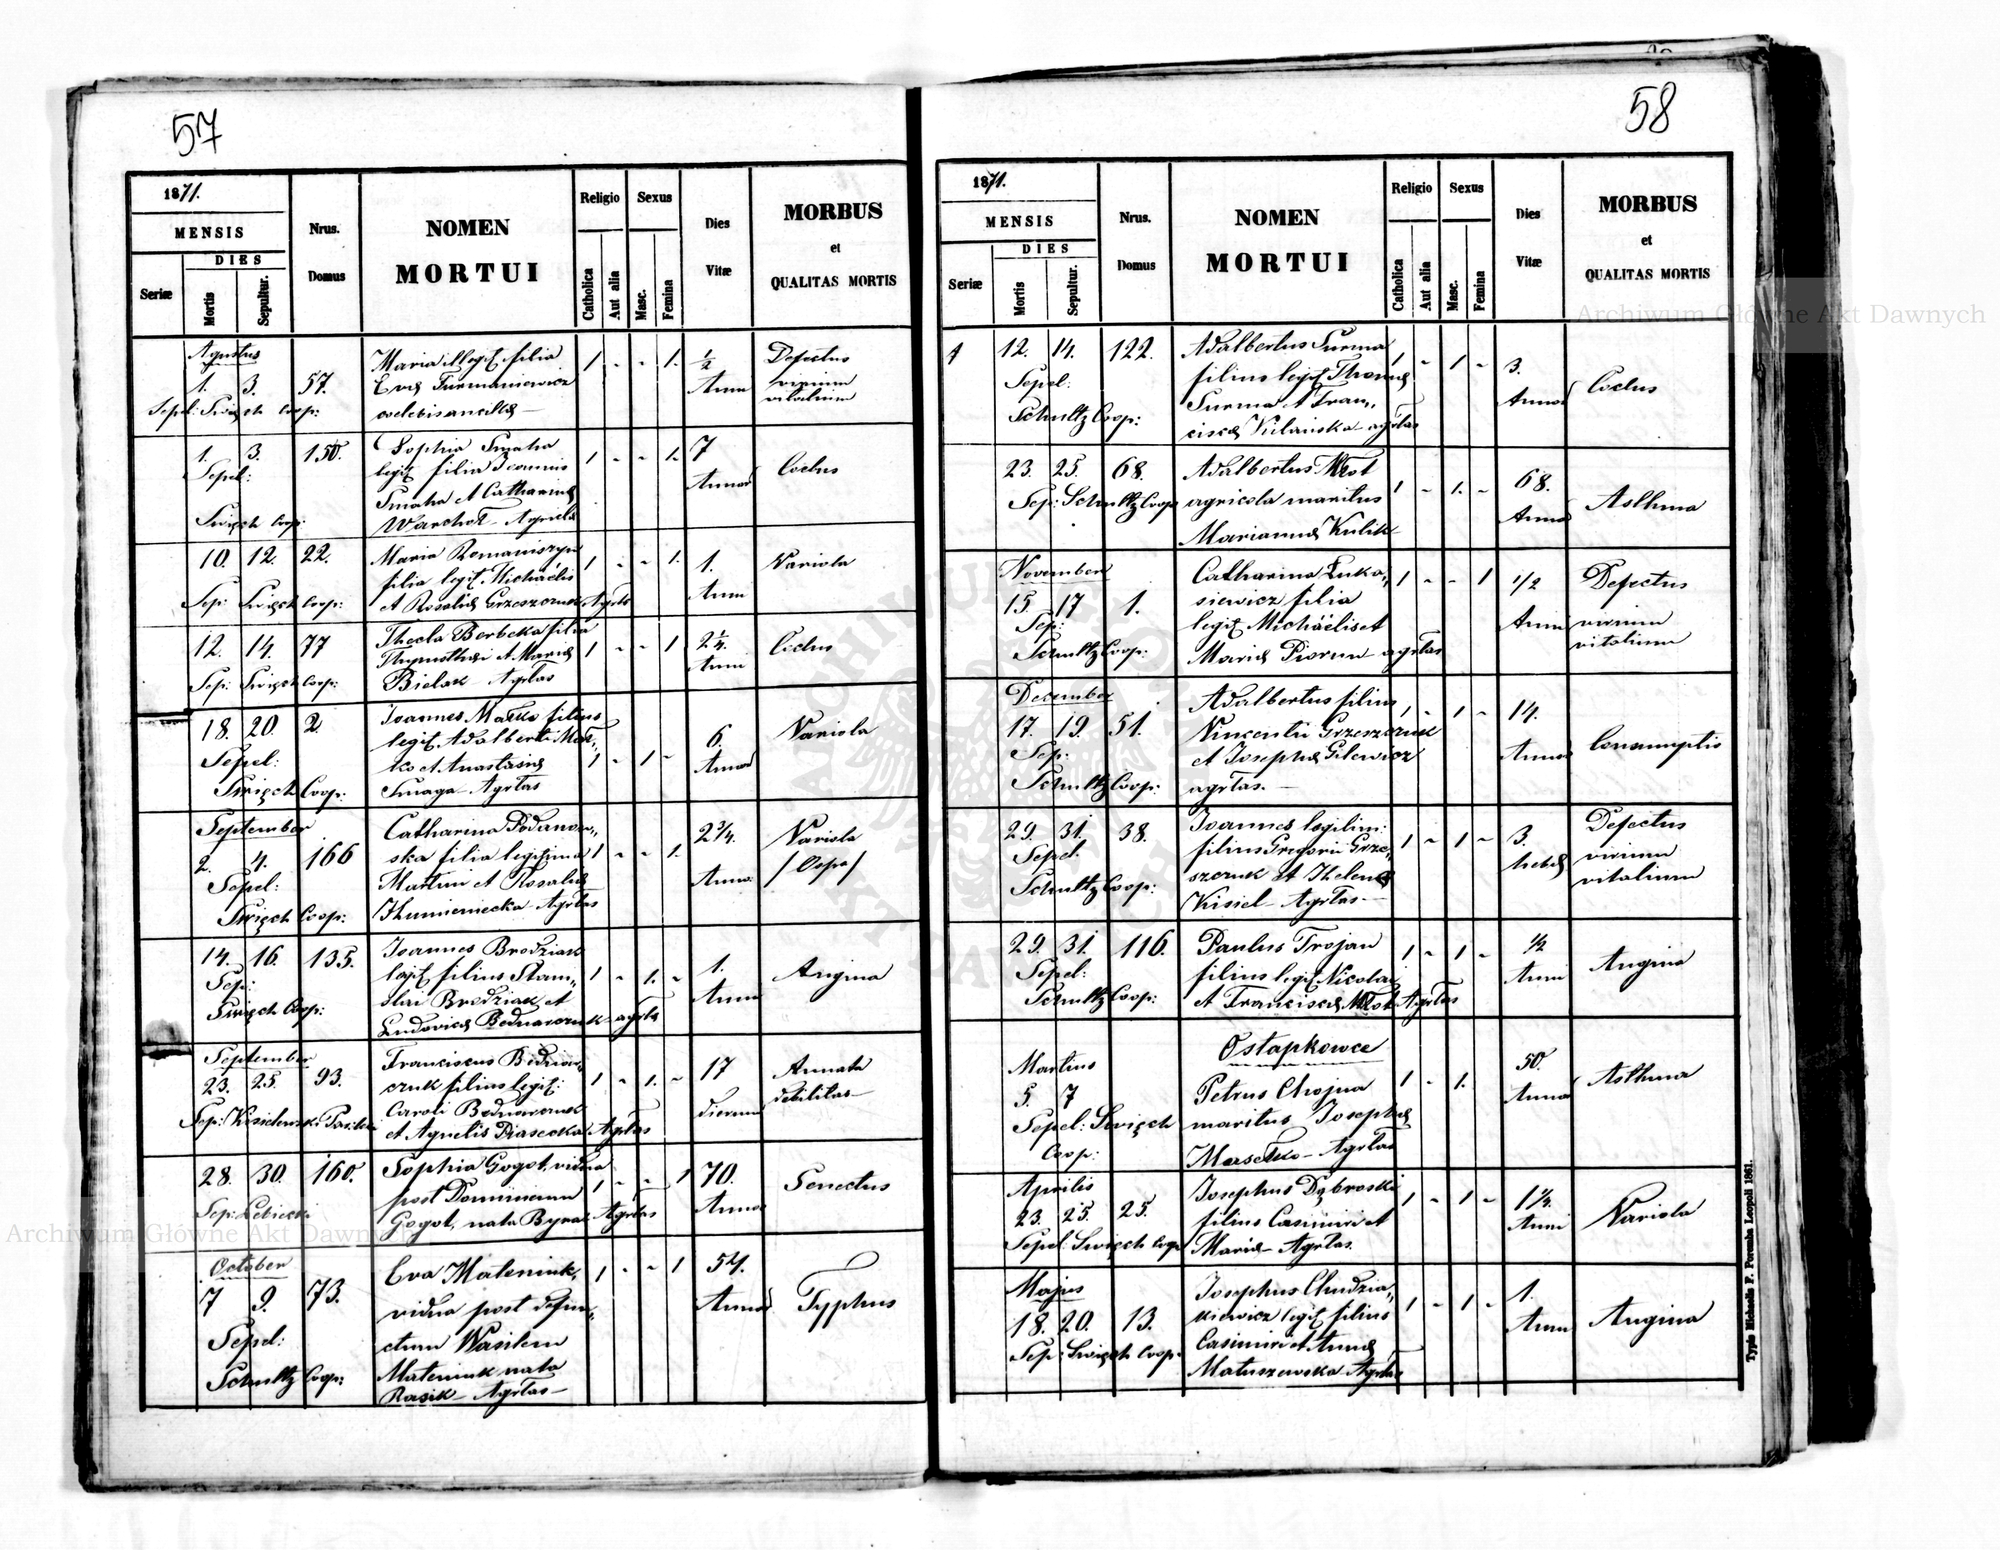 57
1871.
MENSIS
DIES
Seriæ
Mortis
Sepultur.
Nrus.
Domus
NOMEN
MORTUI
Religio
Catholica
Aut alia
Sexus
Masc.
Femina
Dies
Vitæ
MORBUS
et
QUALITAS MORTIS
Agustus
1. 3. 57.
Sepel: Święch Coop:
Maria illegit. filia
Evæ Furmaniewicz
1 - - 1.
1/2
Anni
Defectus
virium
vitalium
1. 3. 150.
Sepel:
Święch Coop:
Sophia Smaha
legit. filia Joannis
Smaha et Catharinæ
Warchoł - Agricolæ
1 - - 1.
7
Annor
Coclus
10. 12. 22.
Sep: Święch Coop:
Maria Romaniszyn
filia legit. Michaëlis
et Rosaliæ Grzeszczuk Agrlas
1 - - 1.
1.
Anni
Variola
12. 14. 77
Sep: Święch Coop:
Thecla Berbeka filia
Thymothei et Mariæ
Bielak Agrlas
1 - - 1
2 1/4.
Anni
Coclus
18. 20. 2.
Sepel:
Święch Coop:
Joannes Małko filius
legit. Adalberti Mał-
ko et Anastasiæ
Smaga - Agrlas
1 - 1 -
6.
Annor
Variola
September
2. 4. 166
Sepel:
Święch Coop:
Catharina Podanow-
ska filia legitima
Martini et Rosaliæ
Agrlas
1 - - 1.
2 3/4.
Anno:
Variola
/Ospa/
14. 16. 135.
Sep:
Święch Coop:
Joannes Brodziak
legit. filius Stani-
slai Brodziak et
Ludovicæ Bednarczuk - agrlas
1 - 1. -
1.
Anni
Angina
September
23. 25. 93.
Franciscus Bednar-
czuk filius legit:
Caroli Bednarczuk
et Agnetis Piasecka Agrlas
1 - 1. -
17
dierum
Annata
debilitas
28. 30. 160.
Sep: Lebiecki
Sophia Gogol, vidua
post Dominicum
Gogol, nata Byrak Agrlas
1 - - 1
70.
Annor
Senectus
October
7 9. 73.
Sepel:
Schultz Coop:
Eva Mateniuk,
vidua post defun-
ctum Wasilem
Mateniuk nata
Rasik - Agrlas
1 - - 1
54.
Annor
Typhus
58
1871.
MENSIS
DIES
Seriæ
Mortis
Sepultur.
Nrus.
Domus
NOMEN
MORTUI
Religio
Catholica
Aut alia
Sexus
Masc.
Femina
Dies
Vitæ
MORBUS
et
QUALITAS MORTIS
12. 14. 122.
Sepel:
Schultz Coop:
Adalbertus Surma
filius legit. Thomæ
Surma et Fran-
ciscæ Kulanska - agrlas
1 - 1 -
3.
Annor
Coclus
23. 25. 68.
Sep: Schultz Coop
Adalbertus Młot
agricola maritus
Mariannæ Kulik
1 - 1. -
68.
Annor
Asthma
November
15. 17 1.
Sep:
Schultz Coop:
Catharina Łuka-
siewicz filia
legit. Michaëlis et
Mariæ Piorun - agrlas
1 - - 1
1/2
Anni
Defectus
virium
vitalium
December
17. 19. 51.
Sep:
Schultz Coop:
Adalbertus filius
Vincentii Grzeszczuk
et Josephæ Gilewicz
agrlas.
1 - 1 -
14.
Annor
Consumptio
29. 31. 38.
Sepel.
Schultz Coop:
Joannes legitim:
filius Gregorii Grze-
szczuk et Helenæ
Kisiel - Agrlas.
1 - 1 -
3.
hebd
Defectus
virium
vitalium
29. 31. 116.
Sepel:
Schultz Coop:
Paulus Trojan
filius legit. Nicolai
et Franciscæ Młot - Agrlas
1 - 1 -
1/2
Anni
Angina
Ostapkowce
Martius
5. 7
Sepel: Święch
Coop:
Petrus Chojna
maritus Josephæ
Marsełko - Agrlas
1 - 1.
50.
Annor
Asthma
Aprilis
23. 25. 25.
Sepel: Święch Coop
Josephus Dąbroski
filius Casimiri et
Mariæ - Agrlas.
1 - 1 -
1 1/4.
Anni
Variola
Majus
18. 20. 13.
Sep: Święch Coop:
Josephus Chudzia-
kiewicz legit. filius
Casimiri et Annæ
Matuszewska Agrlas
1 - 1 -
1.
Anni
Angina
Typis Michaelis F. Poremba Leopoli 1861.
Archiwum Główne Akt Dawnych
Archiwum Główne Akt Dawnych